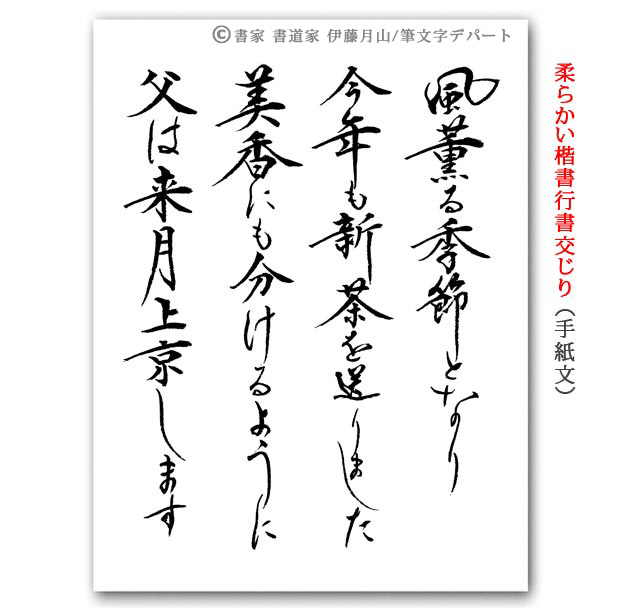 ©書家 書道家 伊藤月山/筆文字デパート
柔らかい楷書行書交じり(手紙文)
風薫る季節となり
今年も新茶を送りました
美香にも分けるように
父は来月上京します